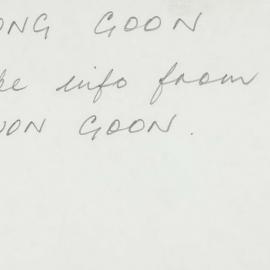 ONG GOON
ke info from
UON GOON.